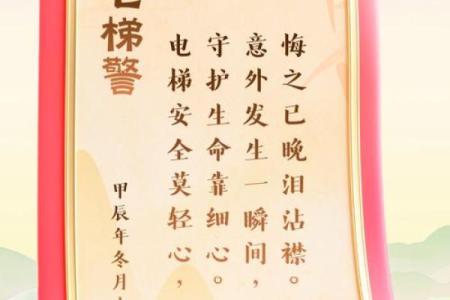 梯警
电梯安全莫轻心，
守护生命靠细心。
意外发生一瞬间，
悔之已晚泪沾襟。
甲辰年冬月